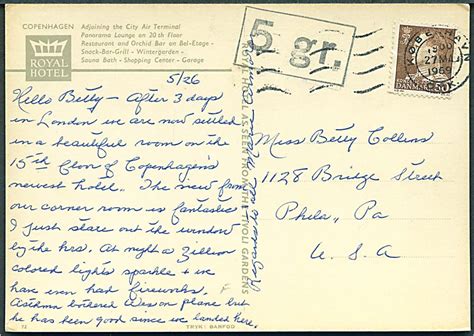 COPENHAGEN
ROYAL HOTEL
Adjoining the City Air Terminal
Panorama Lounge on 20th Floor
Restaurant and Orchid Bar on Bel-Etage
Snack-Bar-Grill - Wintergarden
Sauna Bath - Shopping Center - Garage
5/26
Hello Betty - After 3 days
in London we are now settled
in a beautiful room on the
15th floor of Copenhagen's
newest hotel. The view from
our corner room is fantastic
I just stare out the window
by the hrs. At night a zillion
colored lights sparkle + we
have even had fireworks.
Asthma bothered on plane but
he has been good since we landed here.
72
TRYK: DANFOD
ROYAL HOTEL AS SEEN FROM THE TIVOLI GARDENS
5 gr.
KØBENHAVN
27 MAJ
1969
DANMARK
50
Miss Betty Collins
1128 Bridge Street
Phila, Pa
U.S.A